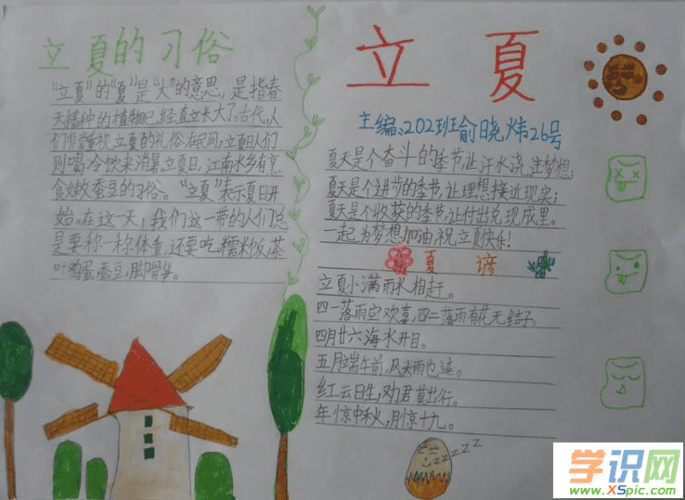 立夏的习俗
"立夏"的"夏"是"大"的意思,是指春
天播种的植物已经直立长大了。古代,人
们非常重视立夏的礼俗。在民间,立夏日人们
则喝冷饮来消暑,立夏日,江南水乡有烹
食嫩蚕豆的习俗。"立夏"表示夏日开
始。在这一天,我们这一带的人们总
是要称一称体重,还要吃糯米饭,茶
叶鸡蛋,蚕豆,脚骨笋。
立夏
主编:202班俞晓炜26号
夏天是个奋斗的季节让汗水浇注梦想;
夏天是个进步的季节,让理想接近现实;
夏天是个收获的季节让付出兑现成果。
一起为梦想加油,祝立夏快乐!
夏谚
立夏小满雨水相赶。
四一落雨空欢喜,四二落雨有花无结子。
四月廿六海水开目。
五月端午前,风大雨也连。
红云日生,劝君莫出行。
年惊中秋,月惊十九。
zzzzz
学识网
www.XSpic.com